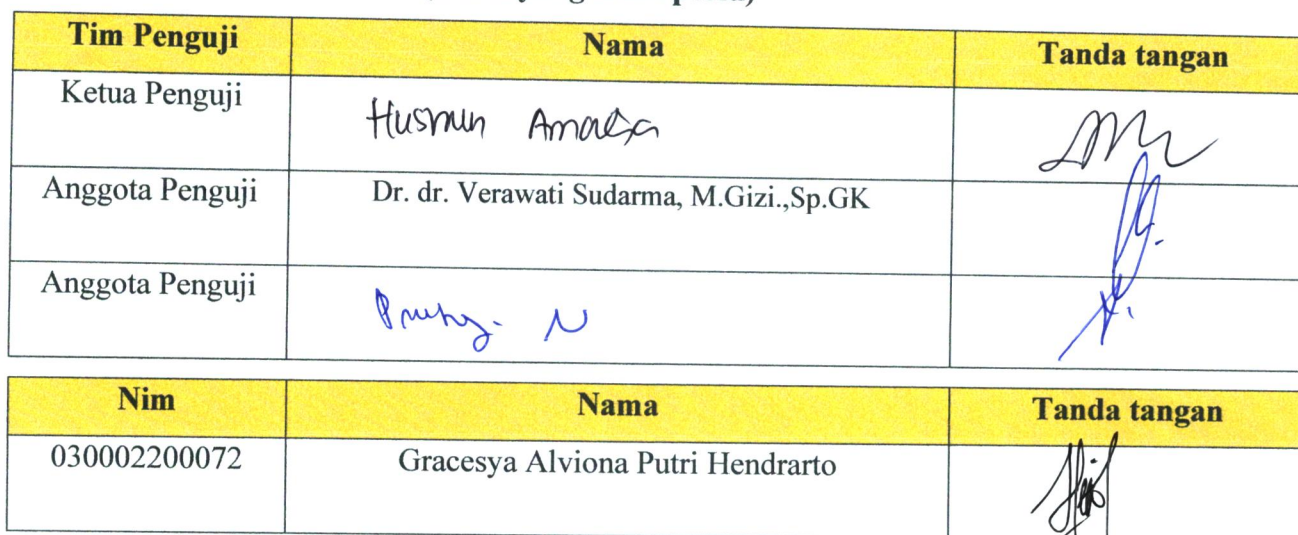 Tim Penguji Nama Tanda tangan
Ketua Penguji Husnun Amalia
Anggota Penguji Dr. dr. Verawati Sudarma, M.Gizi.,Sp.GK
Anggota Penguji
Nim Nama Tanda tangan
030002200072 Gracesya Alviona Putri Hendrarto